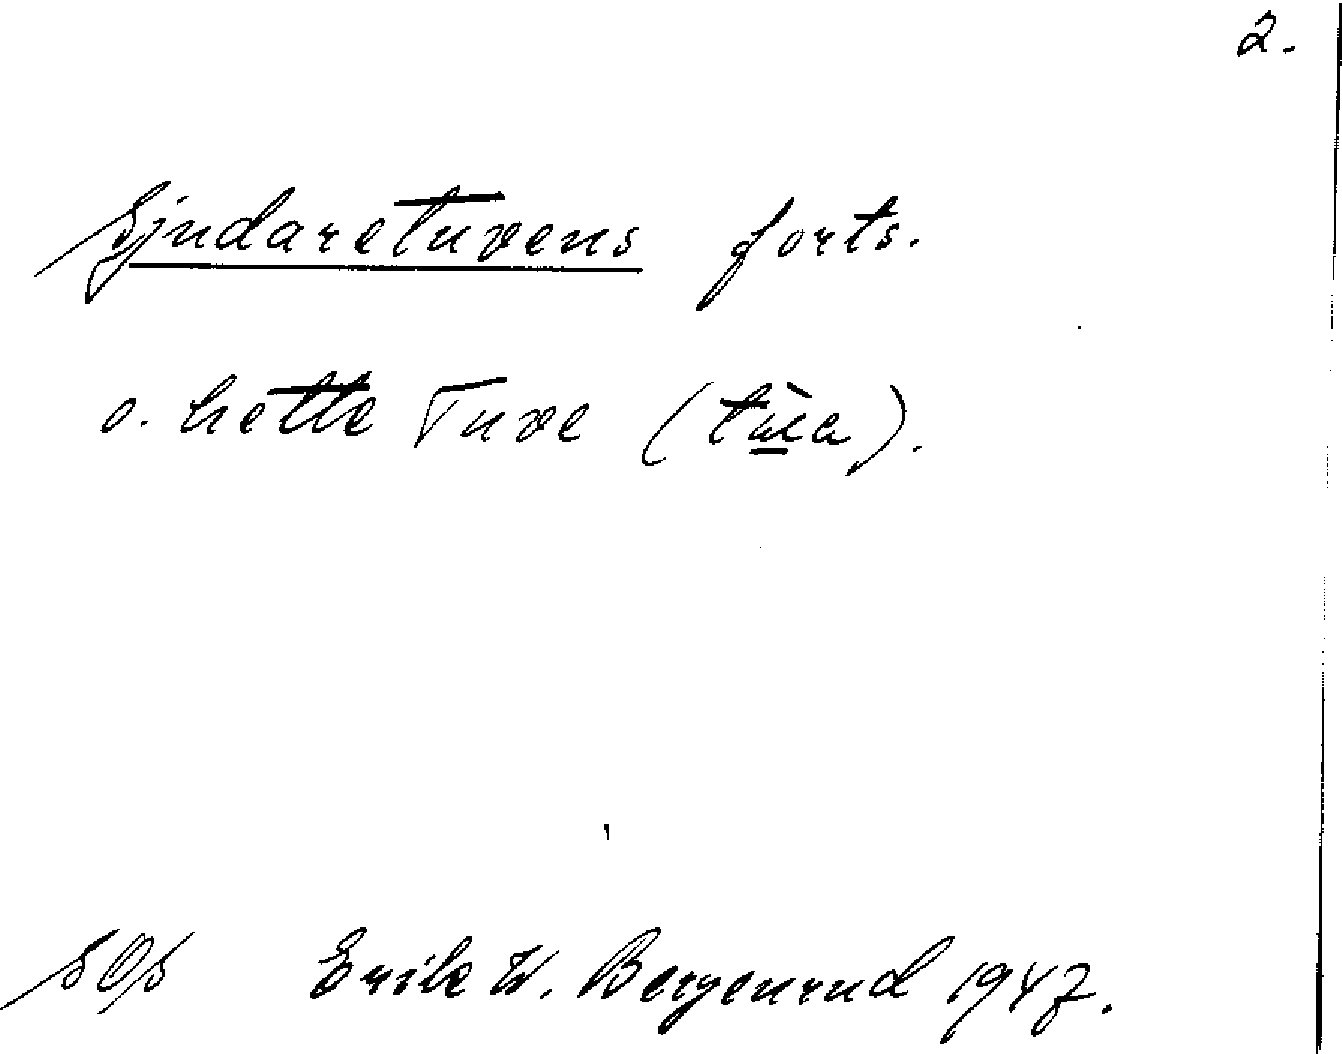 2.
Sjudaretuvens forts.
o. hette Tuve (tùa).
SOS Erik W. Bergenrud 1947.